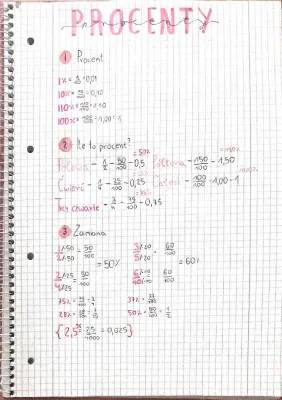 PROCENTY
procenty
1 Procent
1% = 1/100 = 0,01
10% = 10/100 = 0,10
110% = 110/100 = 1,10
100% = 100/100 = 1,00 = 1
2 Ile to procent?
Połowa - 1/2 - 50/100 - 0,5 = 50%
Półtora - 150/100 - 1,50 = 150%
Ćwierć - 1/4 - 25/100 - 0,25
Całość - 100/100 - 1,00 - 1 = 100%
Trzy czwarte - 3/4 - 75/100 - 0,75
3 Zamiana
1/2 /·50 /·50 = 50/100
3/5 /·20 /·20 = 60/100
= 50%
= 60%
2/4 /·25 /·25 = 50/100
6/10 /·10 /·10 = 60/100
75% = 75/100 = 3/4
37% = 37/100
50% = 50/100 = 1/2
{ 2,5% = 25/1000 = 0,025 }